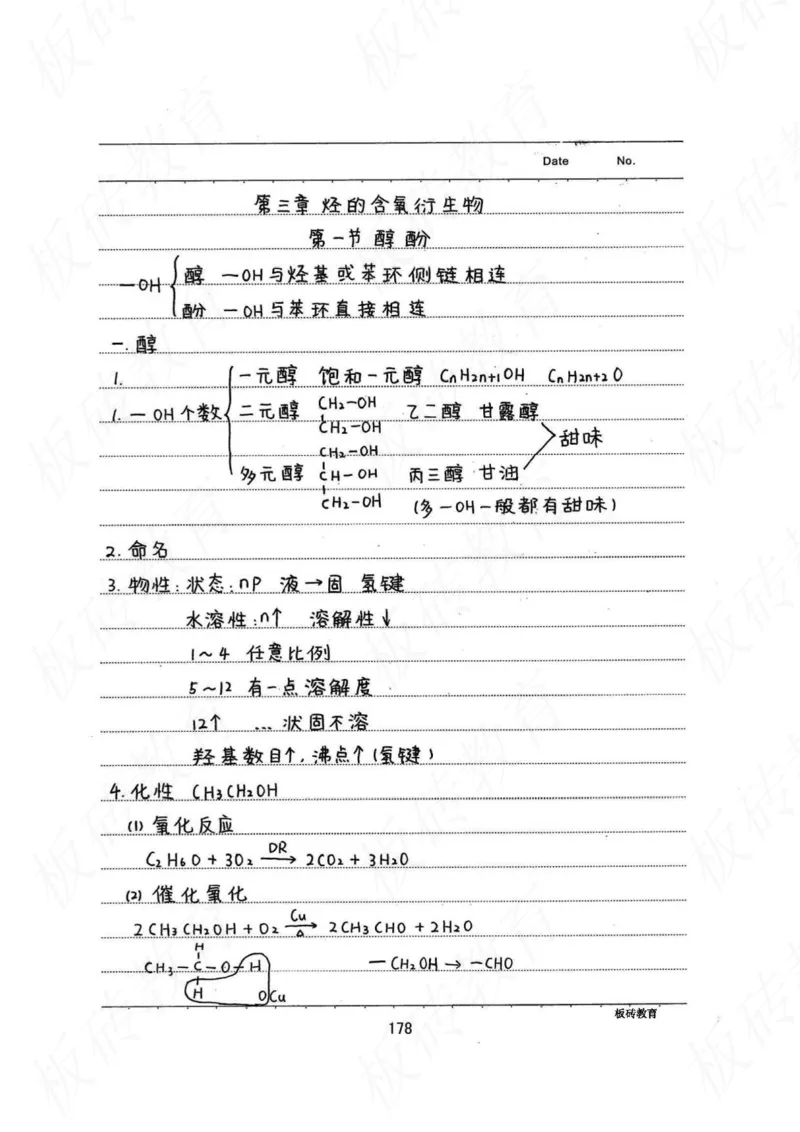 Date No.
第三章 烃的含氧衍生物
第一节 醇 酚
—OH
醇 —OH与烃基或苯环侧链相连
酚 —OH与苯环直接相连
一.醇
1. 一元醇 饱和一元醇 CnH2n+1OH CnH2n+2O
1. —OH个数 二元醇 CH2—OH 乙二醇 甘露醇
CH2—OH
甜味
CH2—OH
多元醇 CH—OH 丙三醇 甘油
CH2—OH (多—OH一般都有甜味)
2. 命名
3. 物性: 状态: np 液→固 氢键
水溶性: n↑ 溶解性↓
1~4 任意比例
5~12 有一点溶解度
12↑ ... 状固不溶
羟基数目↑, 沸点↑(氢键)
4. 化性 CH3CH2OH
(1) 氧化反应
C2H6O + 3O2 —DR→ 2CO2 + 3H2O
(2) 催化氧化
2CH3CH2OH + O2 —Cu/△→ 2CH3CHO + 2H2O
H
CH3—C—O—H —CH2OH → —CHO
H OCu
板砖教育
178